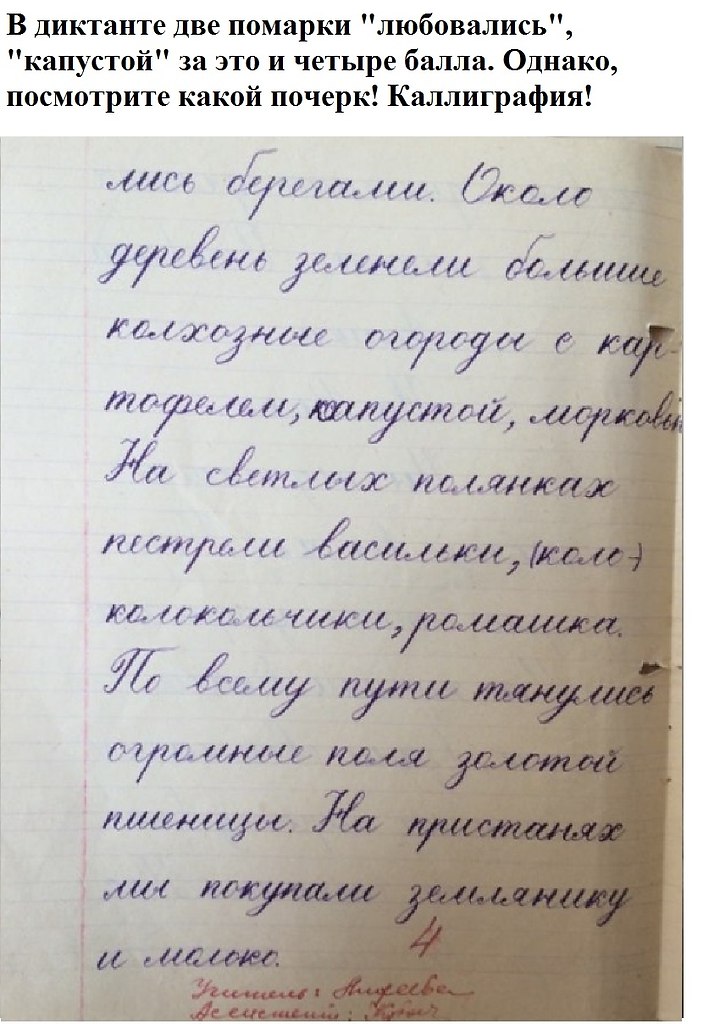 В диктанте две помарки "любовались",
"капустой" за это и четыре балла. Однако,
посмотрите какой почерк! Каллиграфия!
лись берегами. Около
деревень зеленели большие
колхозные огороды с кар-
тофелем, капустой, морковью
На светлых полянках
пестрели васильки, (коло-)
колокольчики, ромашка.
По всему пути тянулись
огромные поля золотой
пшеницы. На пристанях
мы покупали землянику
и молоко.
4
Учитель: Андреева
Ассистент: